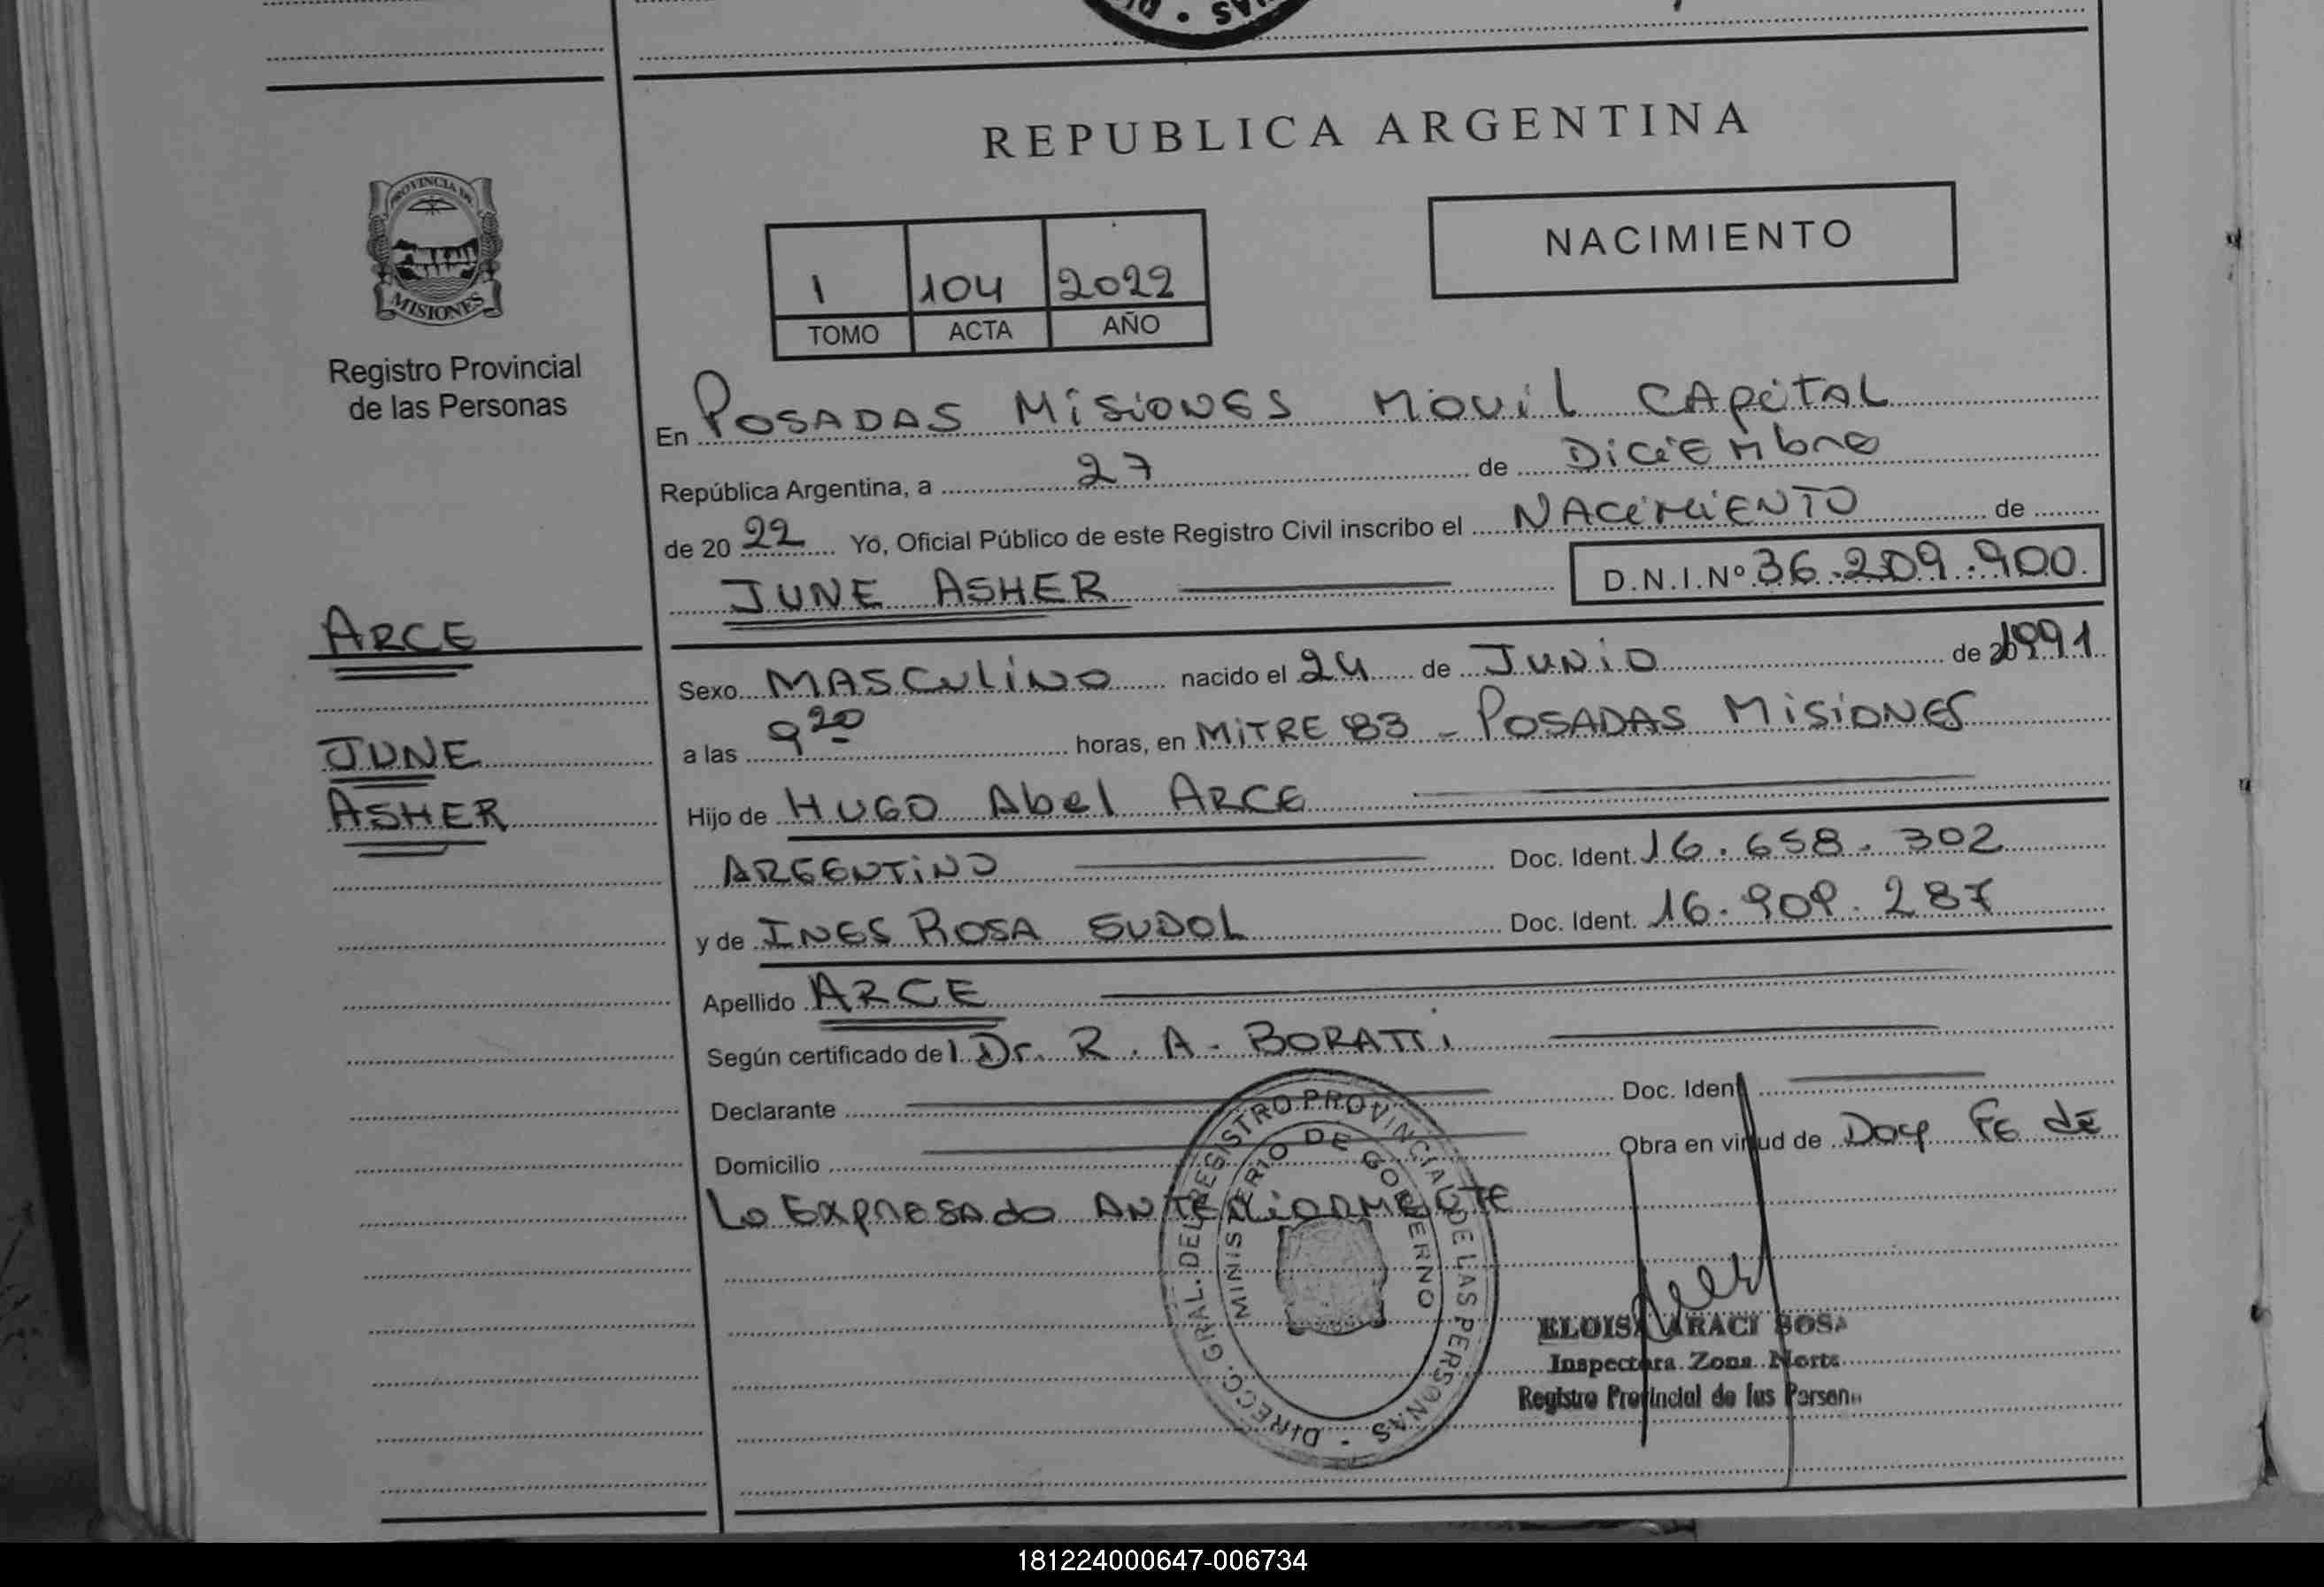 DI · SAN
REPUBLICA ARGENTINA
PROVINCIA DE
MISIONES
Registro Provincial
de las Personas
1 104 2022
TOMO ACTA AÑO
NACIMIENTO
En POSADAS MISIONES MOVIL CAPITAL
República Argentina, a 27 de DICIEMbre
de 2022 Yo, Oficial Público de este Registro Civil inscribo el NACIMIENTO de
JUNE ASHER D.N.I.Nº 36.209.900
ARCE
JUNE
ASHER
Sexo MASCULINO nacido el 24 de JUNIO de 1991
a las 9 20 horas, en MITRE 83 - POSADAS MISIONES
Hijo de HUGO Abel ARCE
ARGENTINO Doc. Ident. 16.658.302
y de INES ROSA SUDOL Doc. Ident. 16.909.287
Apellido ARCE
Según certificado del Dr. R. A. BORATTI
Declarante Doc. Ident
Domicilio Obra en virtud de Doy FE dE
Lo EXPRESAdo ANTERIORMENTE
DIRECC. GRAL. DEL REGISTRO PROVINCIAL DE LAS PERSONAS
MINISTERIO DE GOBIERNO
ELOISA ARACI SOSA
Inspectora Zona Norte
Registro Provincial de las Person
181224000647-006734